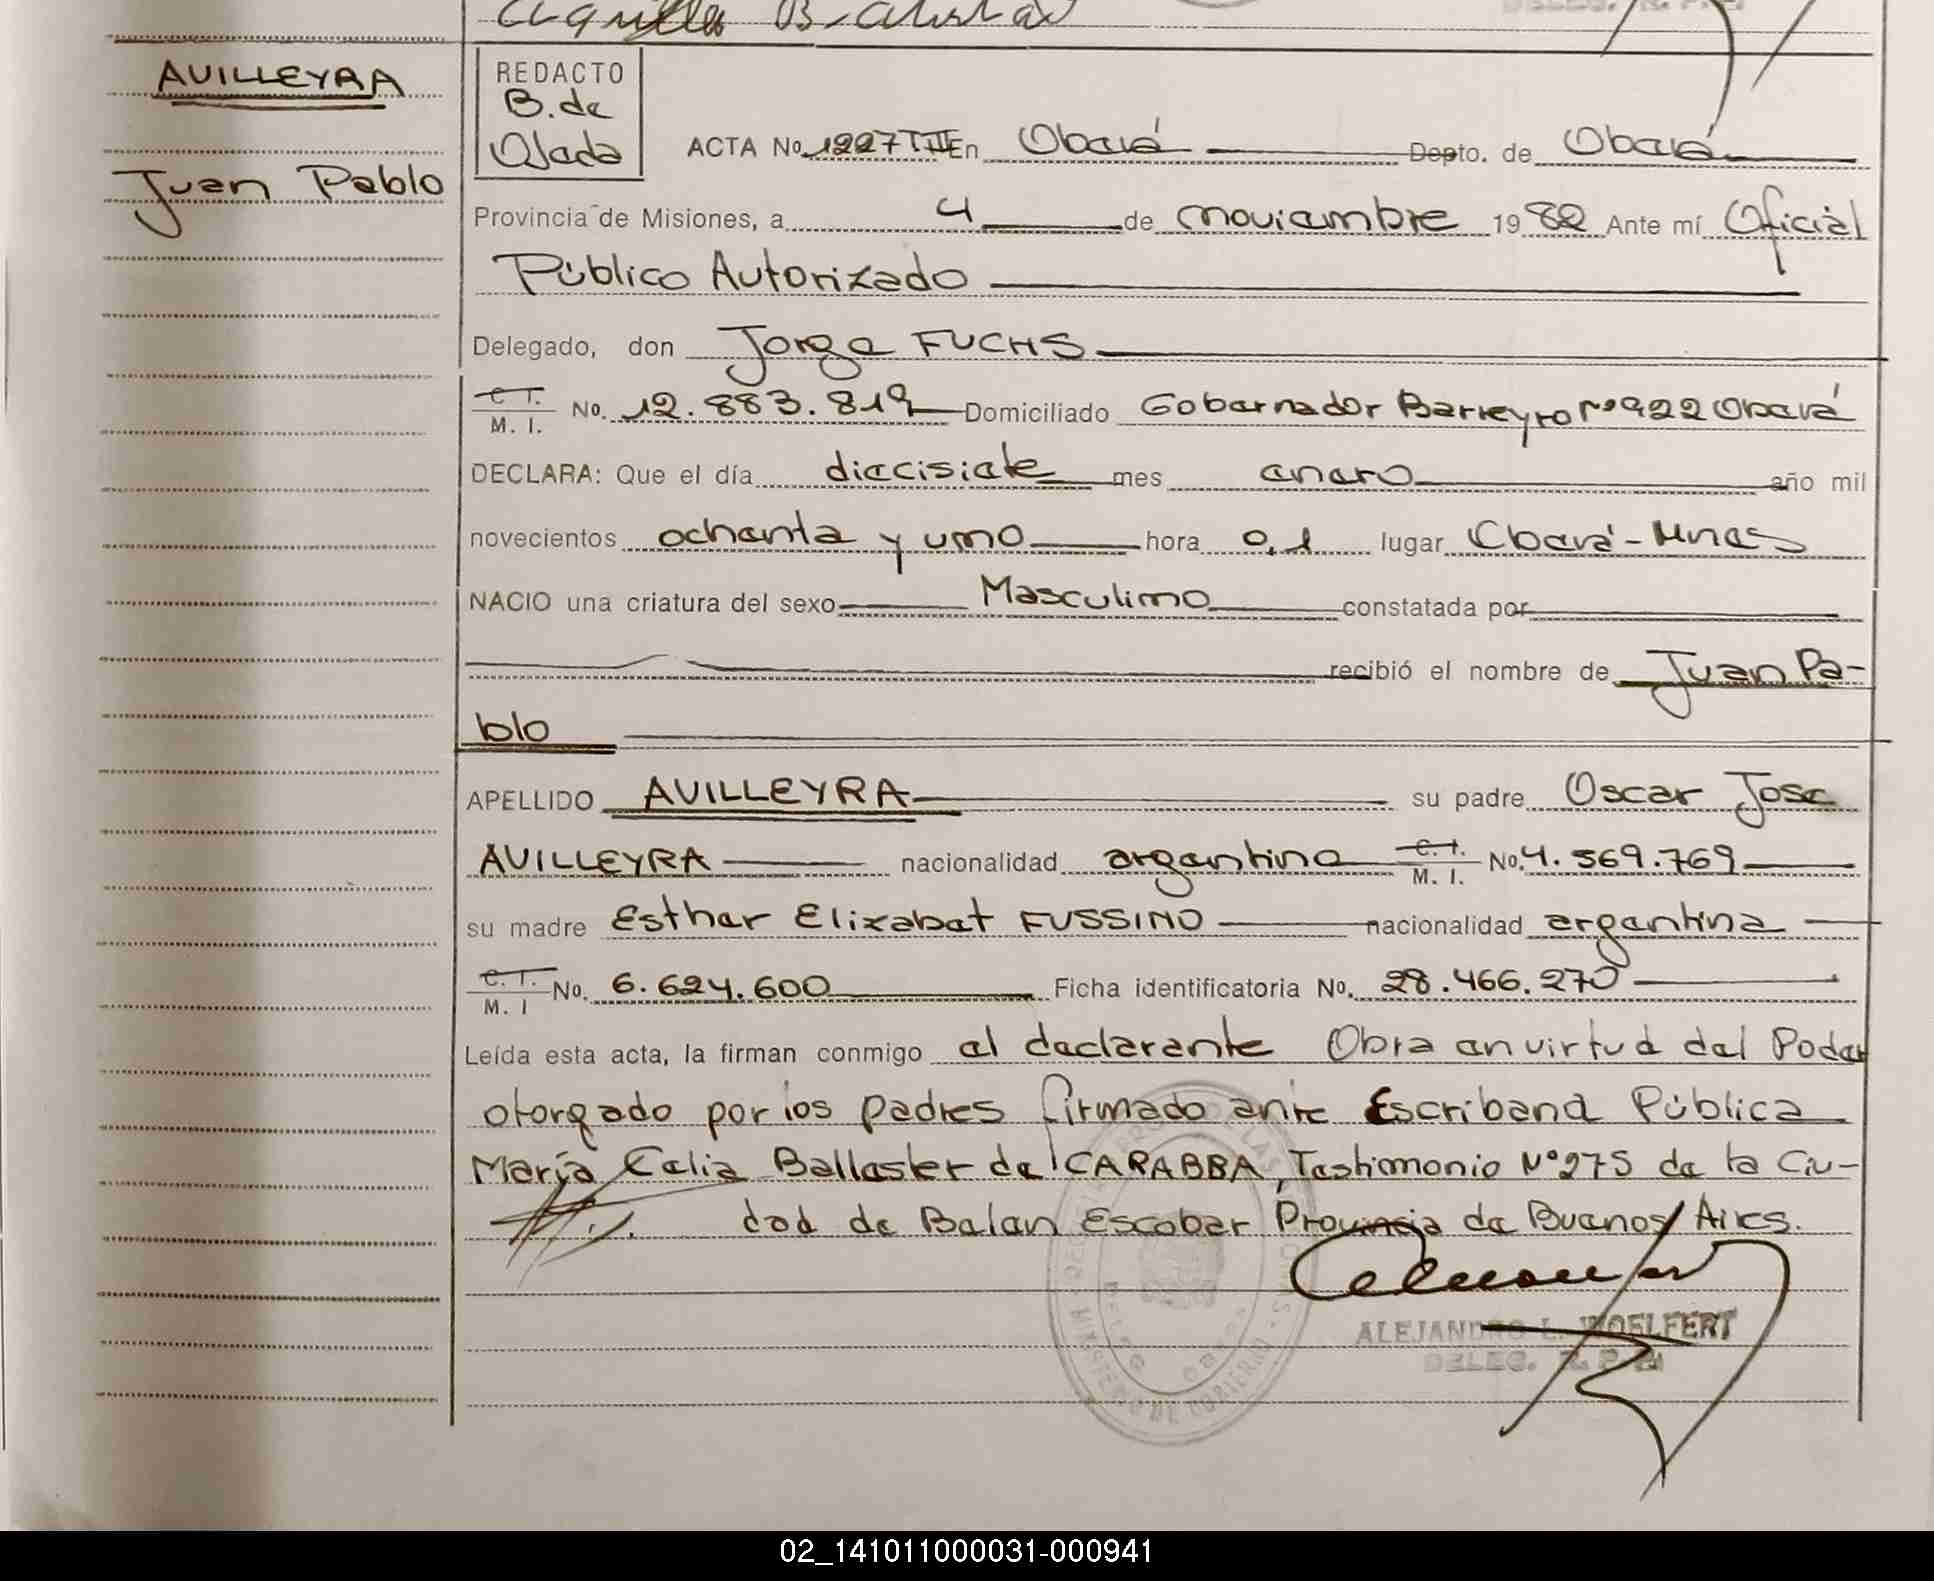 Aquilla B
AVILLEYRA
Juan Pablo
REDACTO
B. de
Ojeda
ACTA No. 1227 TIII En Oberá Depto. de Oberá
Provincia de Misiones, a 4 de noviembre 1982 Ante mí Oficial
Público Autorizado
Delegado, don Jorge FUCHS
C. I.
M. I. No. 12.883.819 Domiciliado Gobernador Barreyro Nº 922 Oberá
DECLARA: Que el día diecisiete mes enero año mil
novecientos ochenta y uno hora 0,1 lugar Oberá - Mnes
NACIO una criatura del sexo Masculino constatada por
recibió el nombre de Juan Pa-
blo
APELLIDO AVILLEYRA su padre Oscar Jose
AVILLEYRA nacionalidad argentino C. I. M. I. No. 4.569.769
su madre Esther Elizabet FUSSINO nacionalidad argentina
C. I. M. I No. 6.624.600 Ficha identificatoria No. 28.466.270
Leída esta acta, la firman conmigo el declarante Obra en virtud del Poder
otorgado por los padres firmado ante Escribana Pública
María Celia Ballester de CARABBA, Testimonio Nº 275 de la Ciu-
dad de Belen Escobar Provincia de Buenos Aires.
ALEJANDRO L. WOELFERT
DELEG. R. P. P.
02_141011000031-000941